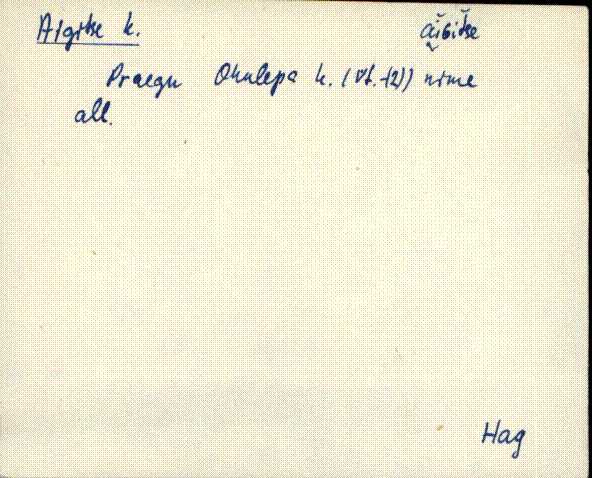 Algitse k.
Praegu Ohulepa k. (vt. -12)) nime
all.
Hag